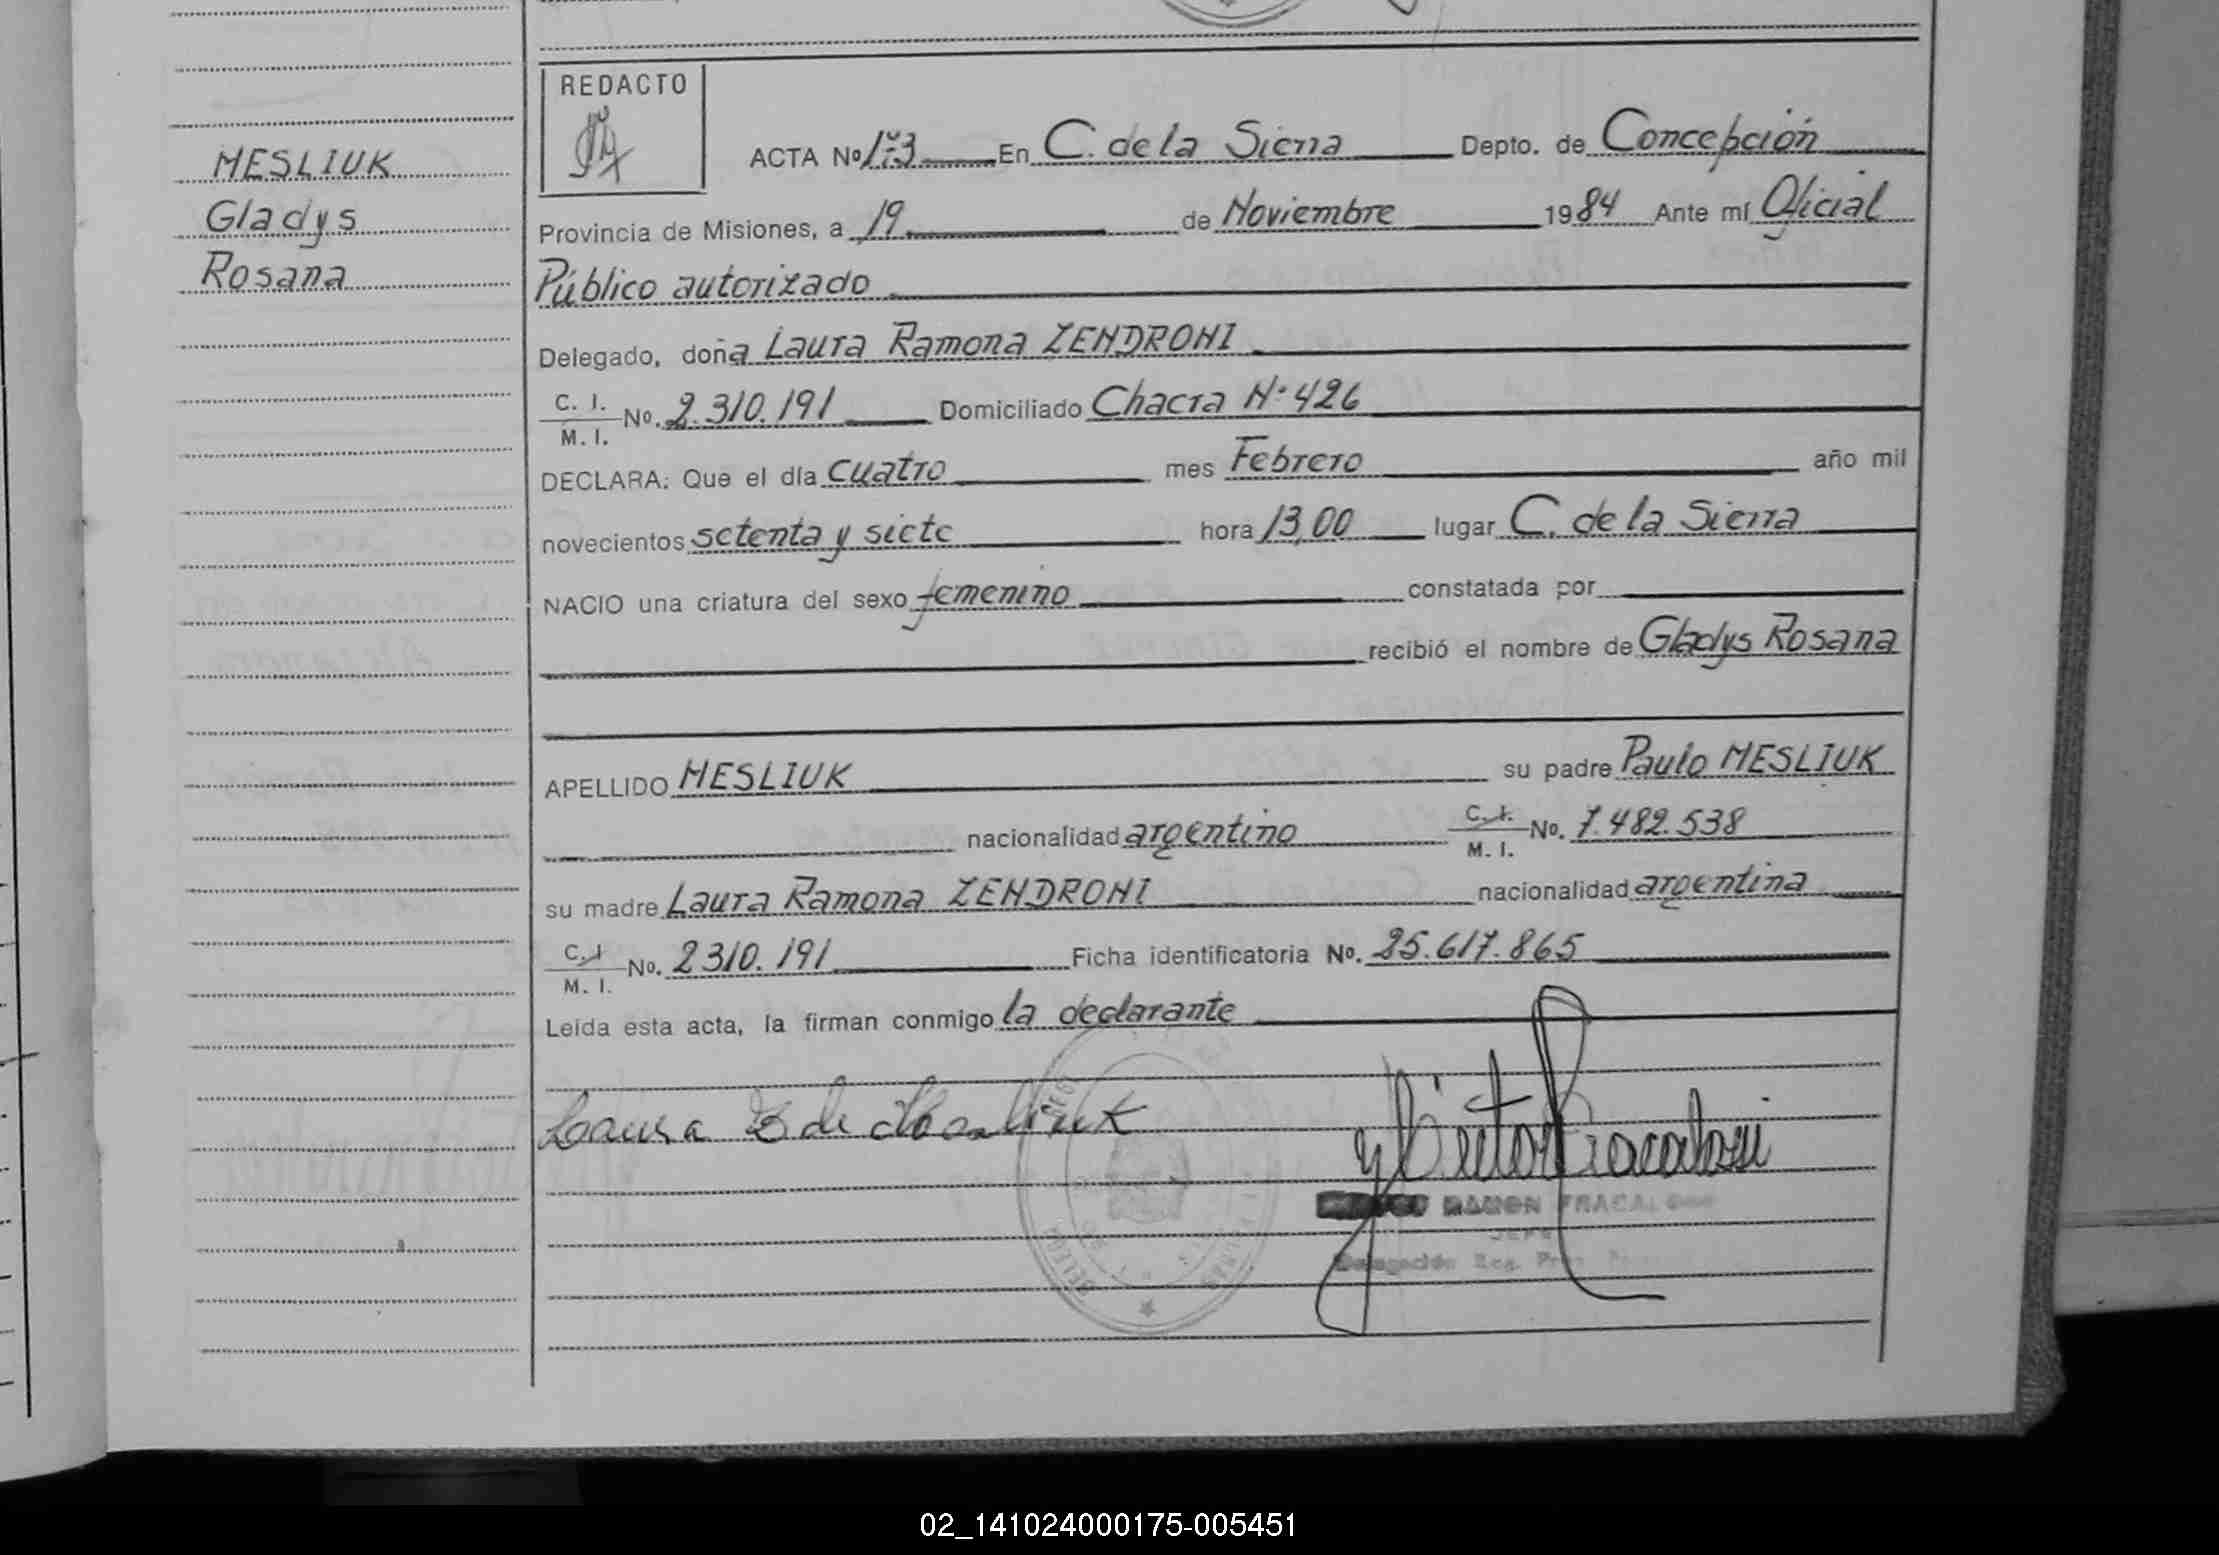 REDACTO
ACTA Nº 173 En C. de la Sierra Depto. de Concepción
MESLIUK
Gladys
Rosana
Provincia de Misiones, a 19 de Noviembre 1984 Ante mí Oficial
Público autorizado
Delegado, doña Laura Ramona ZENDRONI
C. I. M. I. No. 2.310.191 Domiciliado Chacra Nº 426
DECLARA: Que el día cuatro mes Febrero año mil
novecientos setenta y siete hora 13,00 lugar C. de la Sierra
NACIO una criatura del sexo femenino constatada por
recibió el nombre de Gladys Rosana
APELLIDO MESLIUK su padre Paulo MESLIUK
nacionalidad argentino C. I. M. I. No. 7.482.538
su madre Laura Ramona ZENDRONI nacionalidad argentina
C. I. M. I. No. 2310.191 Ficha identificatoria No. 25.617.865
Leída esta acta, la firman conmigo la declarante
Laura Z de Mesliuk
RAMON FRACALOSSI
JEFE
Delegación Reg. Prov.
02_141024000175-005451